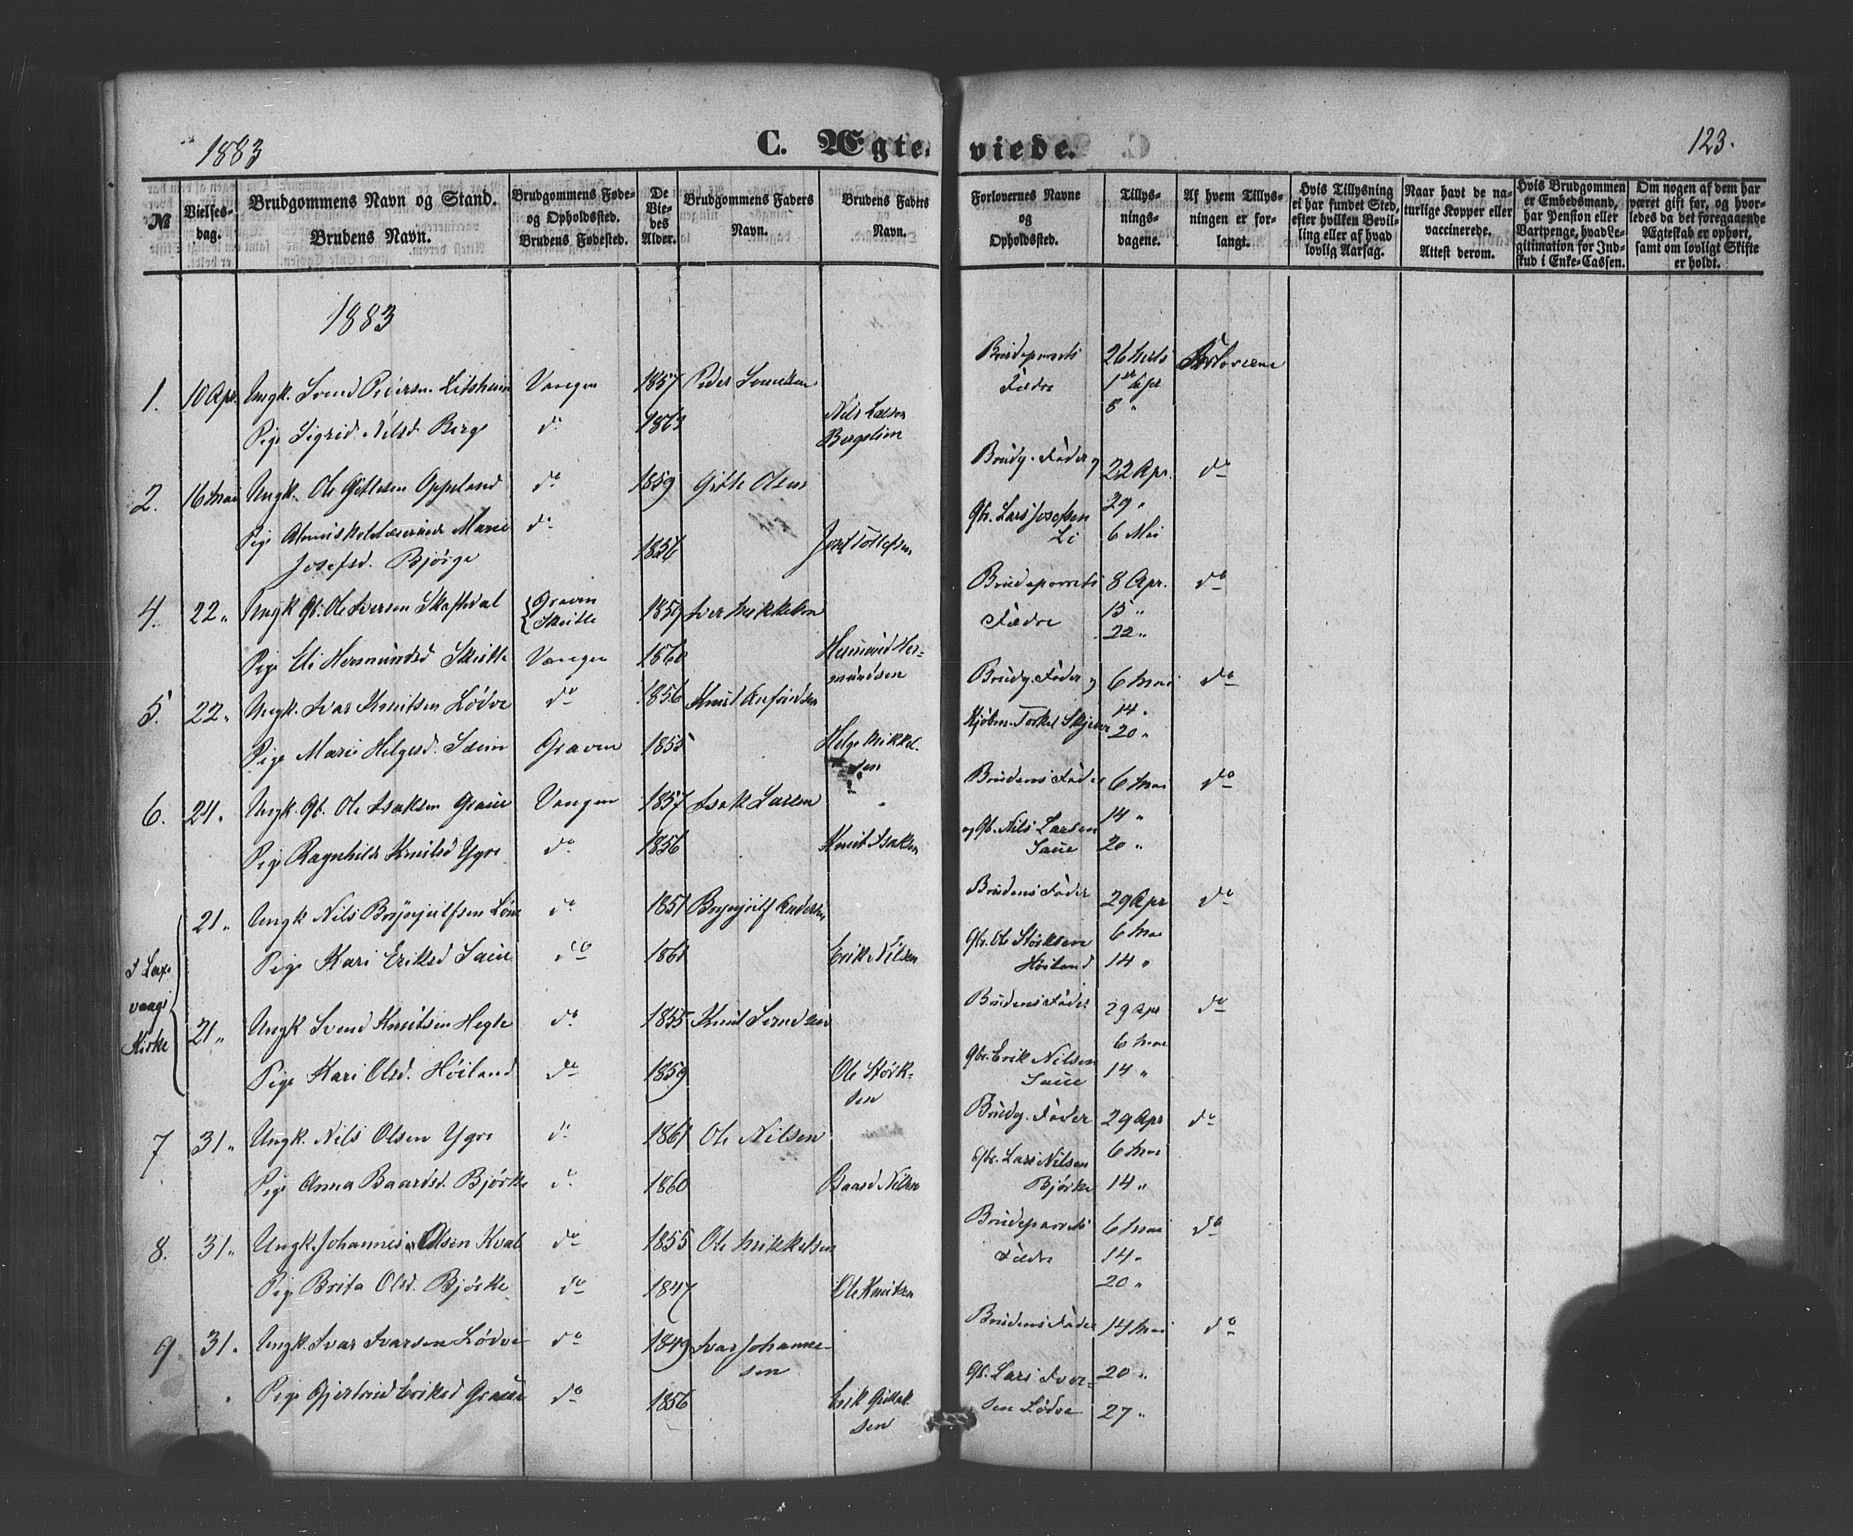 1883
C. Ægteviede.
123.
№
Vielsesdag.
Brudgommens Navn og Stand.
Brudens Navn.
Brudgommens Føde-
og Opholdssted.
Brudens Fødested.
De
Vie-
des
Alder.
Brudgommens Faders
Navn.
Brudens Faders
Navn.
Forlovernes Navne
og
Opholdssted.
Tillys-
nings-
dagene.
Af hvem Tillys-
ningen er for-
langt.
Hvis Tillysning
ei har fundet Sted,
efter hvilken Bevil-
ling eller af hvad
lovlig Aarsag.
Naar havt de na-
turlige Kopper eller
vaccinerede.
Attest derom.
Hvis Brudgommen
er Embedsmand,
har Pension eller
Vartpenge, hvad Le-
gitimation for Ind-
skud i Enke-Cassen.
Om nogen af dem har
været gift før, og hvor-
ledes da det foregaaende
Ægteskab er ophørt,
samt om lovligt Skifte
er holdt.
1883
1. 10 Apr. Ungk. Svend Pedersen Vangen 1857 Peder Brudeparrets Fædre 26 Marts 1 Apr 8 " Forloverne
Pige Sigrid Nilsd. Berge do 1863 Nils
2. 16 Mai Ungk. Ole Gitlesen Oppeland do 1859 Gitle Olsen Brudg. Fader og 22 Apr. do
Gbr. Lars Josefsen Li 29 " 6 Mai
Pige Marie do
Josefsd. Bjørge 1856
4. 22 " Ungk. Gb. Ole Iversen Skaftedal Graven 1859 Iver Mikkelsen Brudeparrets Fædre 8 Apr. 15 " 22 " do
Pige Eli Hermundsd. Vangen 1860 Hermund Her-
mundsen
5. 22 " Ungk. Ivar Knutsen Lødve do 1856 Knut Brudg. Fader og 6 Mai do
Kjøbm. Torkel 14 " 20 "
Pige Marie Helgesd. Seim Graven 1855 Helge Mikkel-
sen
6. 24 " Ungk. Gb. Ole Isaksen Graue Vangen 1857 Isak Larsen Brudens Fader 6 Mai do
og Gb. Nils Larsen Saue 14 " 20 "
Pige Ragnhild Knutsd Ygre do 1856 Knut Isaksen
I
vaags
Kirke
21 " Ungk Nils Brynjulfsen Løne do 1851 Brynjulf Andersen Brudens Fader 29 Apr do
Gbr. Ole Størksen Høiland 6 Mai 14 "
Pige Kari Eriksd Saue do Erik Nilsen
21 " Ungk Svend Knutsen Hegle do 1855 Knut Svendsen Brudens Fader 29 Apr do
Gbr. Erik Nilsen Saue 6 Mai 14 "
Pige Kari Olsd. Høiland do 1859 Ole Størk-
sen
7 31 " Ungk. Nils Olsen Ygre do 1861 Ole Nilsen Brudg. Fader 29 Apr do
Gbr. Lars Nilsen Bjørke 6 Mai 14 "
Pige Anna Baardsd. Bjørke do 1860 Baard Nilsen
8. 31 " Ungk. Johannes Olsen Kval do 1855 Ole Mikkelsen Brudeparrets Fædre 6 Mai 14 " 20 " do
Pige Brita Olsd. Bjørke do 1847 Ole Knutsen
9 31. Ungk. Ivar Ivarsen Lødve do 1849 Ivar Johanne-
sen Brudens Fader 14 Mai do
Gb. Lars Iver-
sen Lødve 20 " 27 "
Pige Gjertrud Eriksd Graue do 1856 Erik
sen